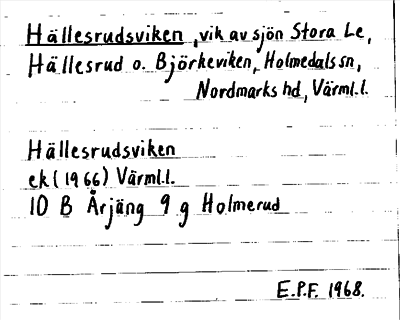 Hällesrudsviken, vik av sjön Stora Le,
Hällesrud o. Björkeviken, Holmedals sn,
Nordmarks hd, Värml.l.
Hällesrudsviken
ek (1966) Värml.l.
10 B Årjäng 9 g Holmerud
E.P.F. 1968.